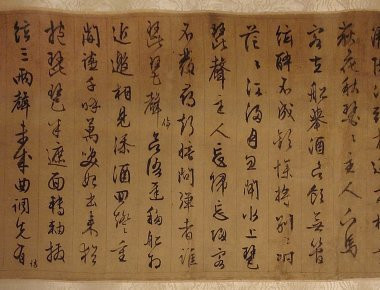 荻花秋瑟〻主人下馬
客在船舉酒欲飲無管
絃醉不成歡慘將別〻時
茫〻江浸月忽聞水上琵
琶聲主人忘歸客
不發尋聲暗問彈者誰
琵琶聲停欲語遲移船相
近邀相見添酒回燈重
開宴千呼萬喚始出來猶
抱琵琶半遮面轉軸撥
絃三兩聲未成曲調先有情